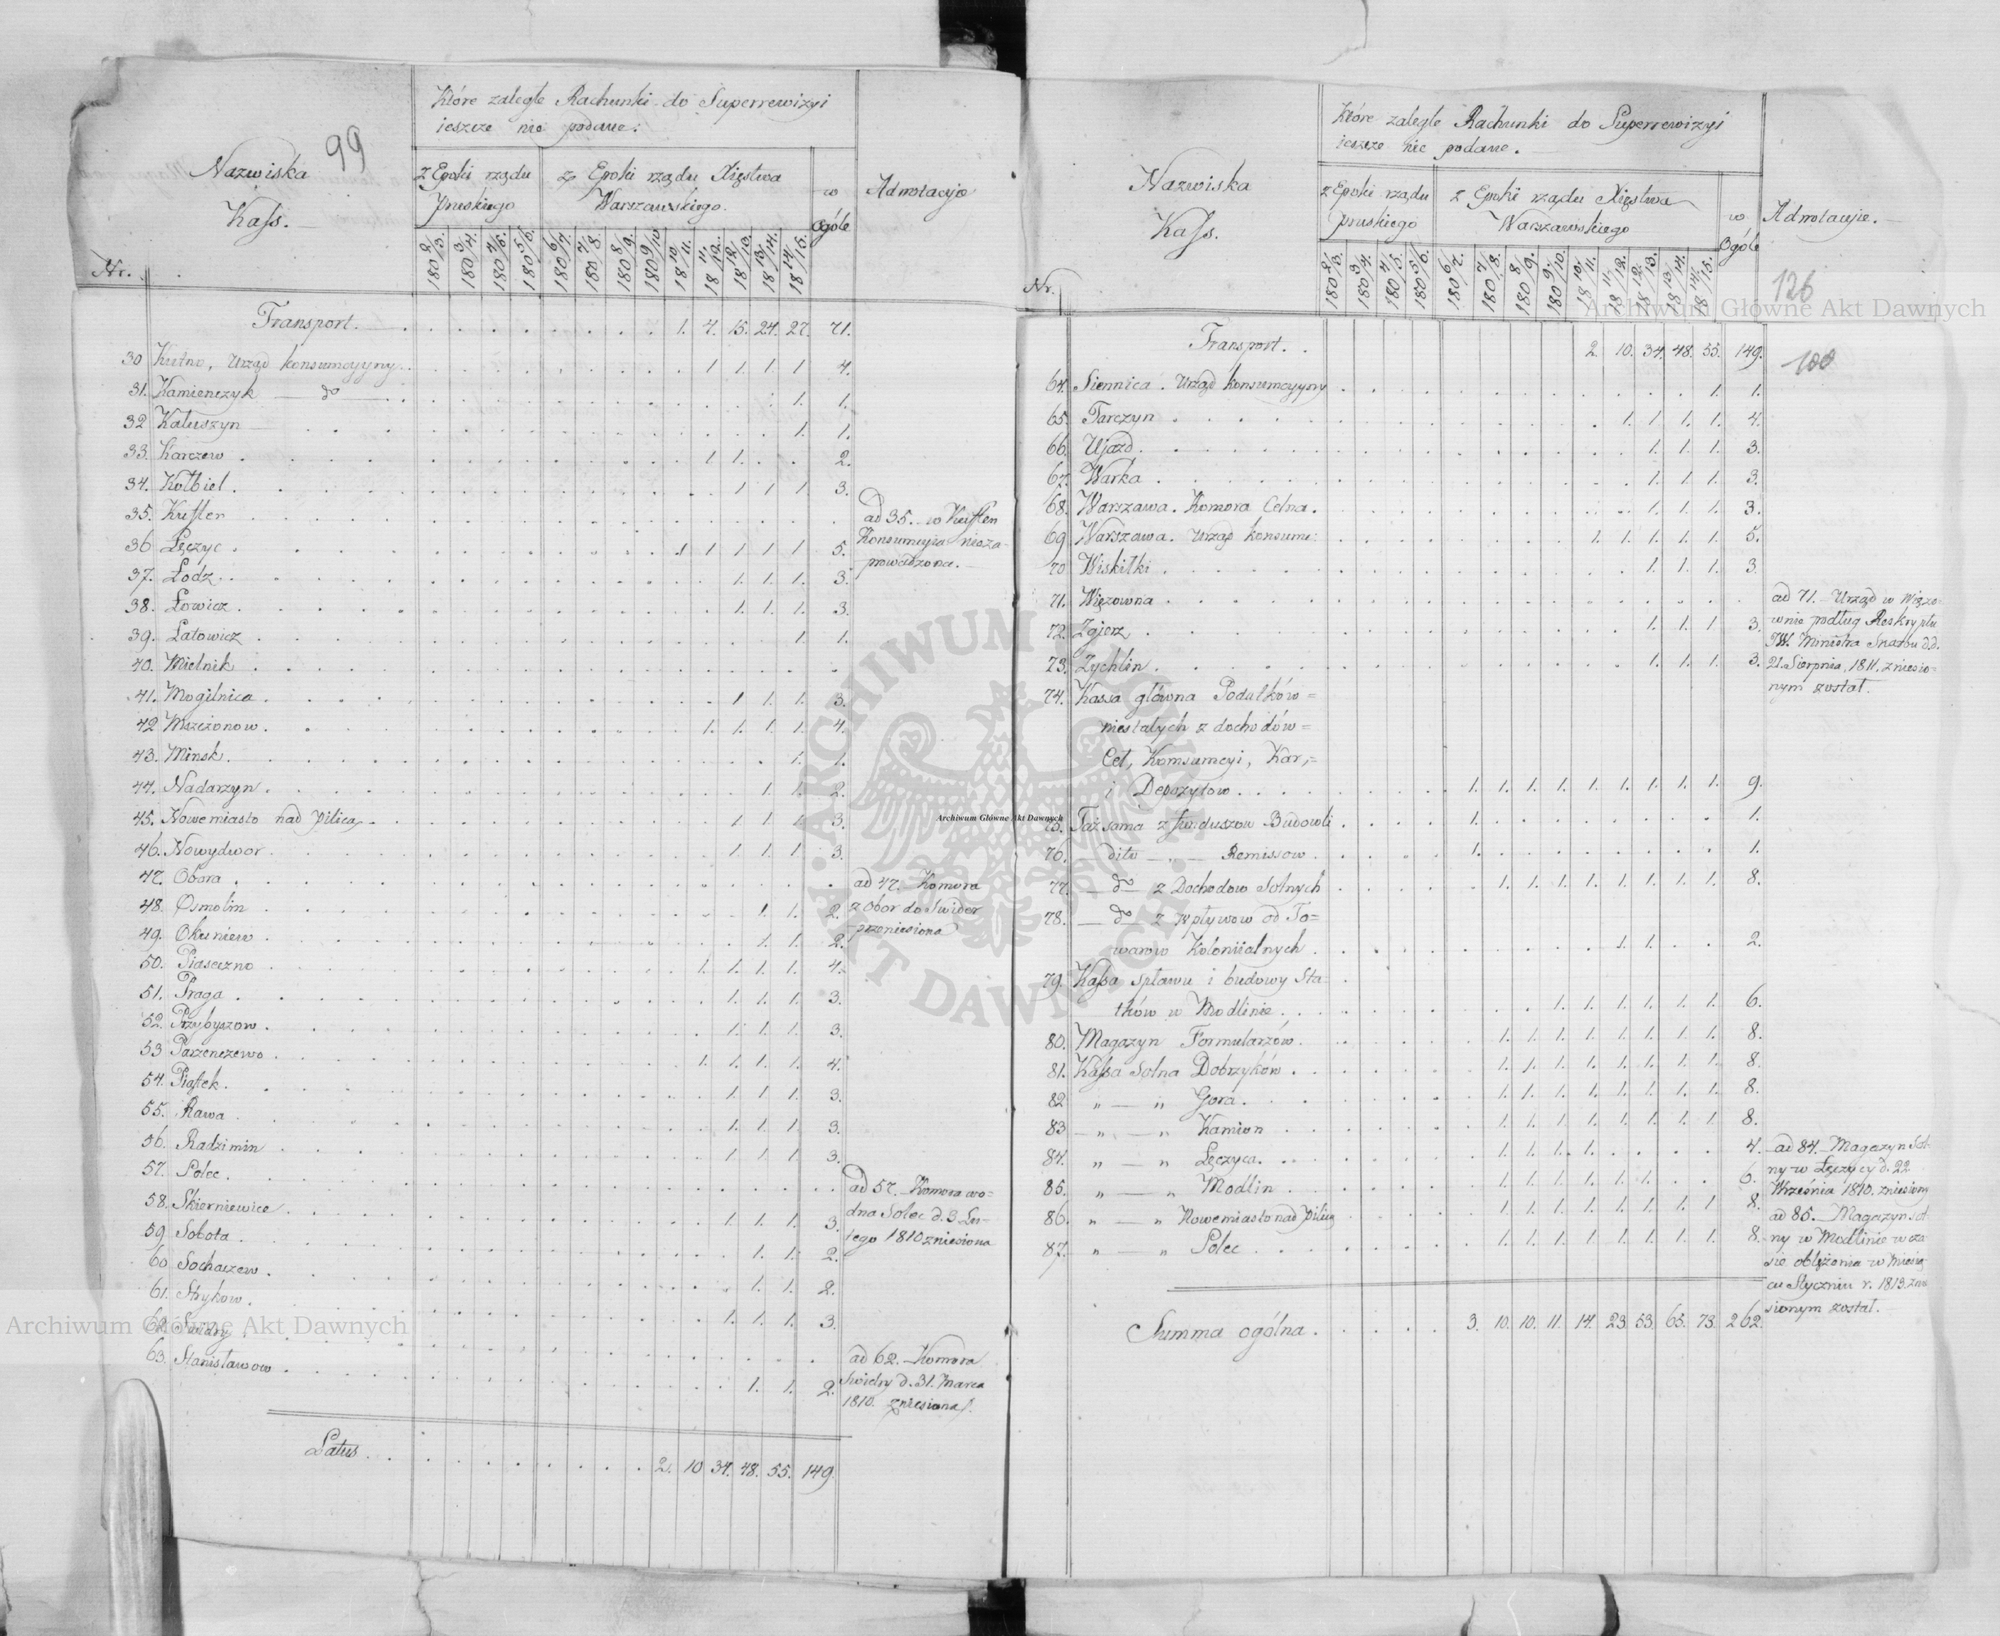 99
Nazwiska
Kass.
Nr.
Które zaległe Rachunki do Superrewizyi
ieszcze nie podane.
z Epoki rządu
Pruskiego
z Epoki rządu Xięstwa
Warszawskiego.
w
Ogóle
Adnotacyje
180 2/3. 180 3/4. 180 4/5. 180 5/6. 180 6/7. 180 7/8. 180 8/9. 180 9/10 18 10/11. 18 11/12. 18 12/13. 18 13/14. 18 14/15.
Transport. 1. 4. 15. 24. 27. 71.
30 Kutno, Urząd konsumcyyny 1 1. 1. 1 4.
31. Kamienczyk do 1. 1.
32 Kałuszyn 1. 1.
33. Karczew 1 1. 2.
34. Kołbiel 1 1 1. 3.
35. Kufflew
36 Łęczyc 1 1 1 1 1 5.
37. Łodz 1. 1. 1. 3.
38. Łowicz 1. 1. 1. 3.
39. Latowicz 1. 1.
40. Mielnik
41. Mogilnica 1 1. 1. 3.
42 Mszczonow 1. 1. 1. 1. 4.
43. Minsk 1. 1.
44. Nadarzyn 1. 1. 2.
45. Nowemiasto nad Pilicą 1 1. 1. 3.
46. Nowydwor 1. 1. 1. 3.
47. Obora
48. Osmolin 1. 1. 2.
49. Okuniew 1. 1. 2.
50. Piaseczno 1. 1. 1. 1. 4.
51. Praga 1. 1. 1. 3.
52. Przybyszow 1. 1. 1. 3.
53 Parzenczewo 1. 1. 1. 1. 4.
54. Piątek 1. 1. 1. 3.
55. Rawa 1. 1. 1. 3.
56. Radzimin 1. 1. 1. 3.
57. Solec
58. Skierniewice 1. 1. 1. 3.
59. Sobota 1. 1. 2.
60 Sochaczew 1. 1. 2.
61. Strykow 1. 1. 1. 3.
62. Swidry
63. Stanisławow 1. 1. 2.
Latus 2. 10 34. 48. 55. 149.
ad 35. w Kufflen
Konsumcyia nieza-
prowadzona.
ad 47. Komora
z Obor do Swider
przeniesiona
ad 57. Komora wo-
dna Solec d. 3 Lu-
tego 1810 zniesiona
ad 62. Komora
Swidry d. 31. Marca
1810. zniesiona.
Nazwiska
Kass.
Nr.
Które zaległe Rachunki do Superrewizyi
ieszcze nie podane.
z Epoki rządu
Pruskiego
z Epoki rządu Xięstwa
Warszawskiego
w
Ogóle
Adnotacyie.
126
100
180 2/3. 180 3/4. 180 4/5. 180 5/6. 180 6/7. 180 7/8. 180 8/9. 180 9/10. 18 10/11. 18 11/12. 18 12/13. 18 13/14. 18 14/15.
Transport. 2. 10. 34. 48. 55. 149.
64. Siennica. Urząd konsumcyyny 1. 1.
65. Tarczyn 1. 1. 1. 1. 4.
66. Ujazd 1. 1. 1. 3.
67. Warka 1. 1. 1. 3.
68. Warszawa. Komora Celna 1. 1. 1. 3.
69. Warszawa. Urząd konsumc: 1. 1. 1. 1. 1. 5.
70 Wiskitki 1. 1. 1. 3
71. Więzowna
72. Zgierz 1. 1. 1 3.
73. Zychlin 1. 1. 1. 3.
74. Kassa główna Podatków=
niestałych z dochodów=
Ceł, Komsumcyi, Kar,=
i Depozytow 1. 1. 1. 1. 1. 1. 1. 1. 1. 9.
75. Taż sama z funduszow Budowli 1. 1.
76. dito Remissow 1. 1.
77. do z Dochodow Solnych 1. 1. 1. 1. 1. 1. 1. 1. 8.
78. do z wpływow od To=
warow Kolonijalnych 1. 1. 2.
79. Kassa spławu i budowy Sta-
tków w Modlinie 1. 1. 1. 1. 1. 1. 6.
80. Magazyn Formularzów 1. 1. 1. 1. 1. 1. 1. 1. 8.
81. Kassa Solna Dobrzyków 1. 1. 1. 1. 1. 1. 1. 1. 8.
82 " — " Gora 1. 1. 1. 1. 1. 1. 1. 1. 8.
83 " — " Kamion 1. 1. 1. 1. 1. 1. 1. 1. 8.
84. " — " Łęczyca 1. 1. 1. 1. 4.
85. " — " Modlin 1. 1. 1. 1. 1. 1. 6.
86. " — " Nowemiasto nad Pilicą 1. 1. 1. 1. 1. 1. 1. 1 8.
87. " — " Solec 1. 1. 1. 1. 1. 1. 1. 1. 8.
Summa ogólna 3. 10. 10. 11. 14. 23. 53. 65. 73. 262.
ad 71. Urząd w Więzo-
wnie podług Reskryptu
JW. Ministra Skarbu d.d.
21. Sierpnia, 1811. zniesio-
nym został.
ad 84. Magazyn Sol-
ny w Łęczycy d. 22
Września 1810. zniesiony
ad 85. Magazyn sol-
ny w Modlinie w cza-
sie oblężenia w Miesią-
cu Styczniu r. 1813. znie-
sionym został.
Archiwum Główne Akt Dawnych
Archiwum Główne Akt Dawnych
Archiwum Główne Akt Dawnych
ARCHIWUM GŁÓWNE AKT DAWNYCH